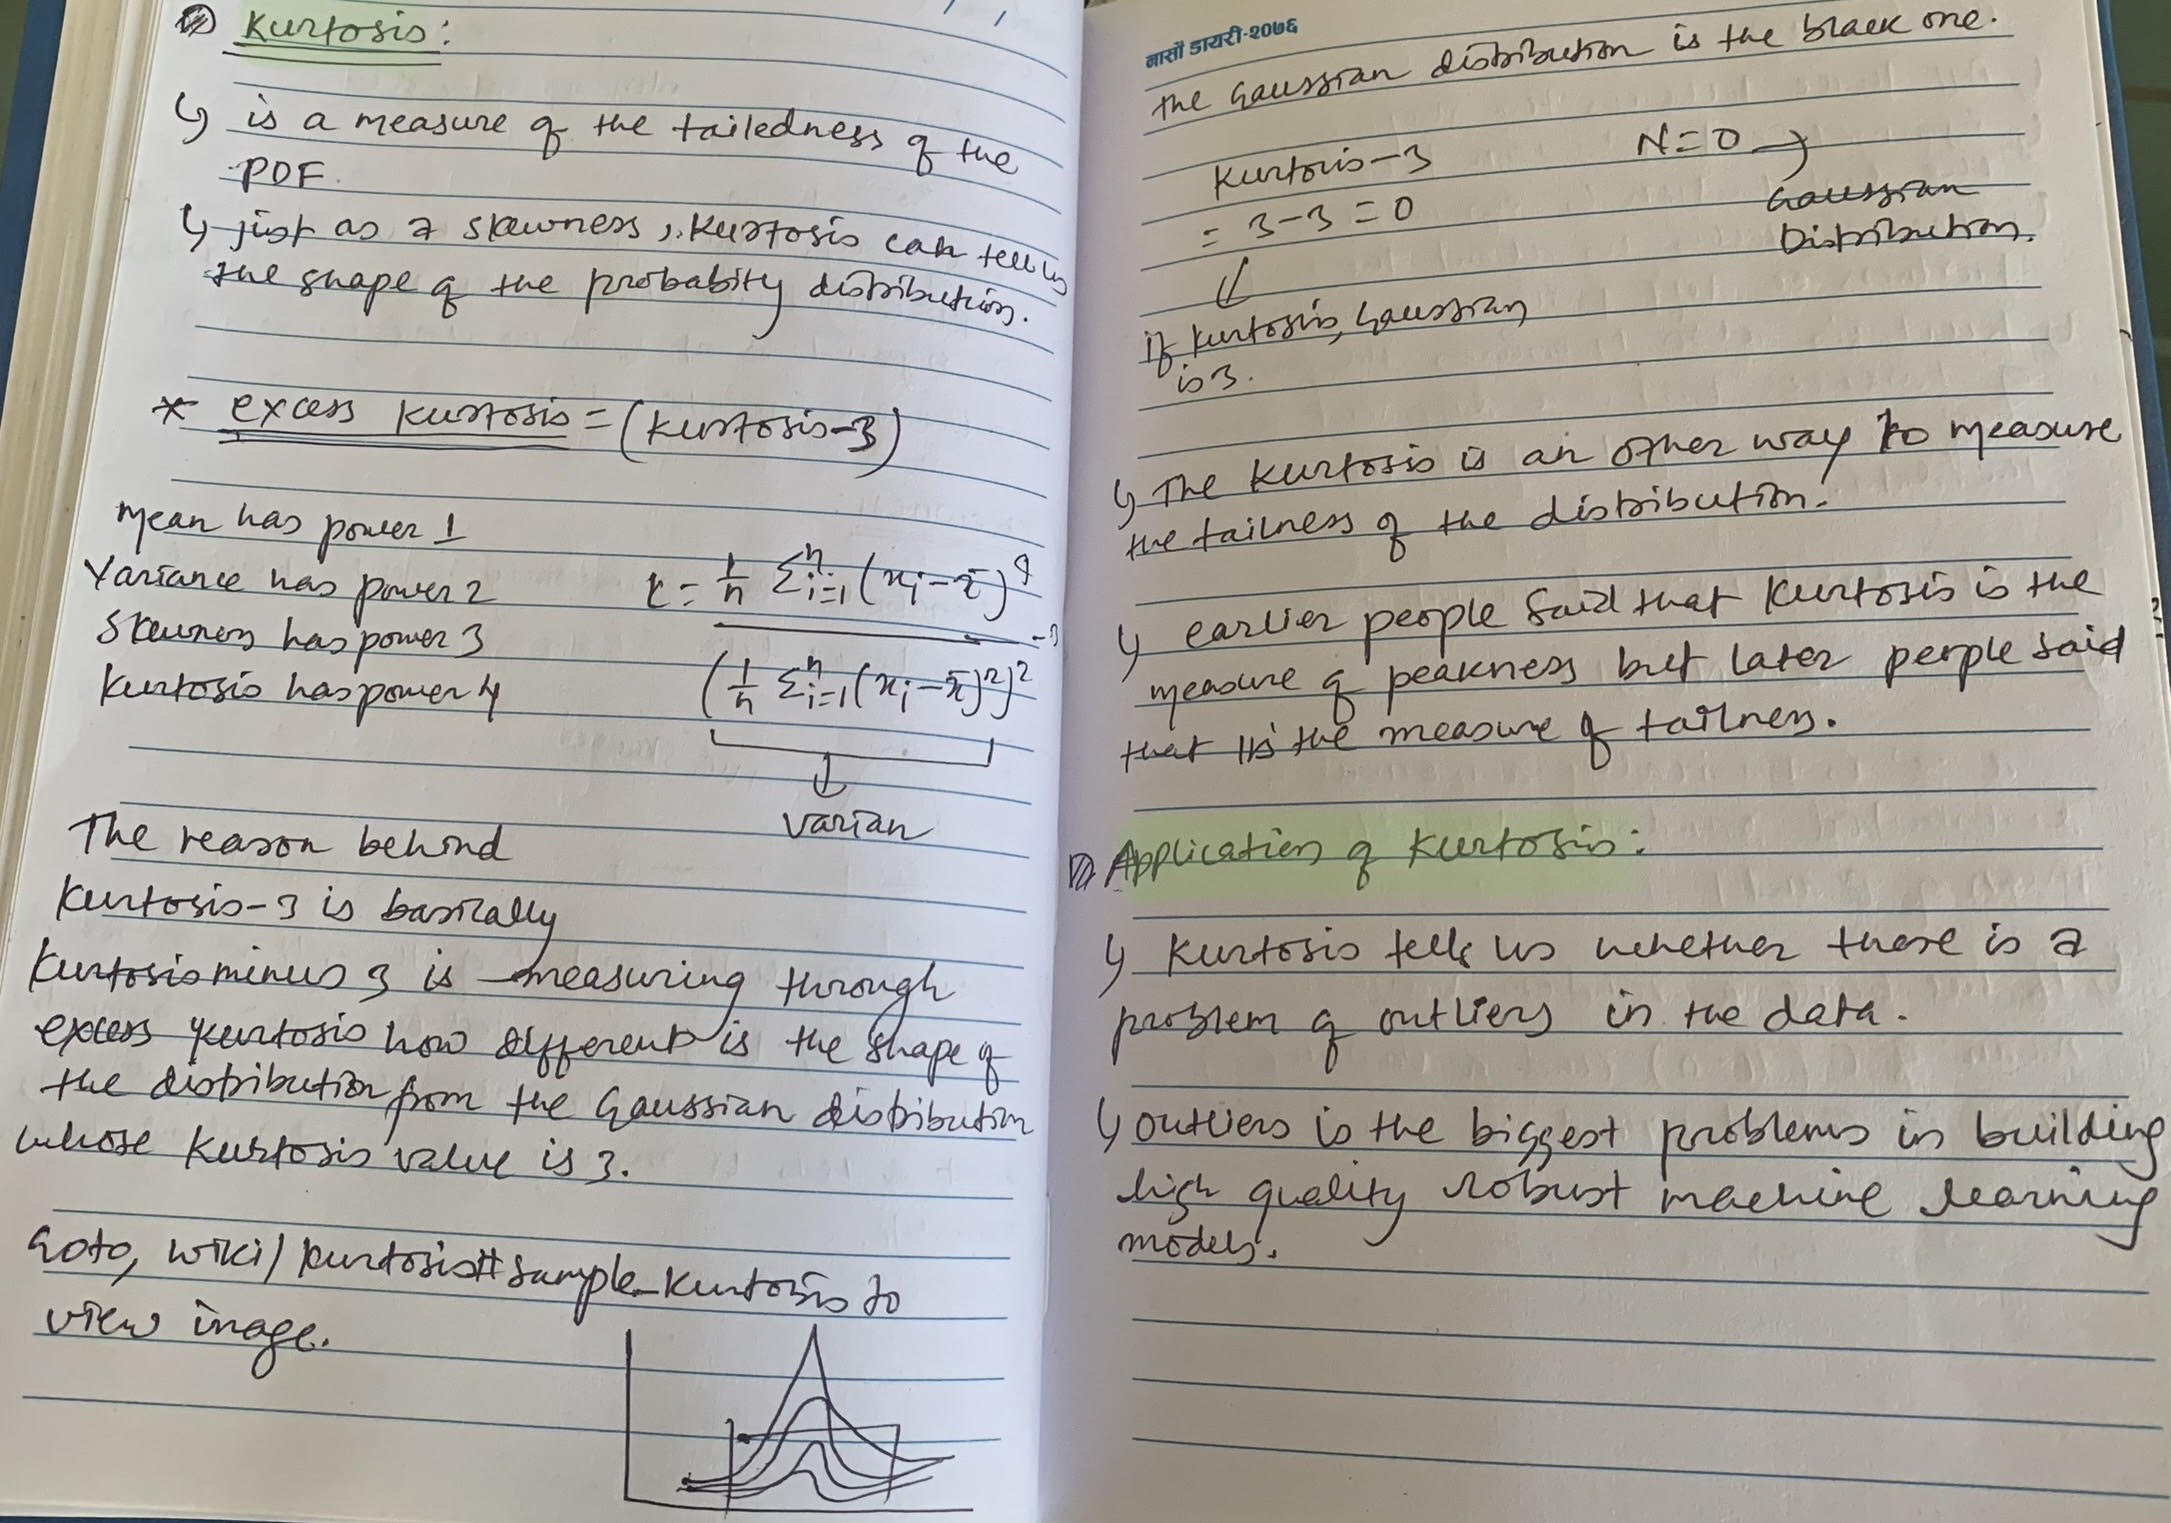 Kurtosis:
↳ is a measure of the tailedness of the
PDF.
↳ just as a skewness, Kurtosis can tell us
the shape of the probabity distribution.
* excess kurtosis = (kurtosis-3)
mean has power 1
Variance has power 2
Skewness has power 3
Kurtosis has power 4
= 1/n Σⁿᵢ₌₁ (xᵢ - x̄)⁴
-3
(1/n Σⁿᵢ₌₁ (xᵢ - x̄)²)²
varian
The reason behind
Kurtosis-3 is basically
Kurtosis minus 3 is measuring through
excess kurtosis how different is the shape of
the distribution from the Gaussian distribution
whose Kurtosis value is 3.
Goto, wiki/kurtosis#sample_kurtosis to
view image.
नासों डायरी-२०७६
the Gaussian distribution is the black one.
Kurtosis-3
= 3-3 = 0
N=0 →
Gaussian
Distribution.
if kurtosis, Gaussian
is 3.
↳ The Kurtosis is an other way to measure
the tailness of the distribution.
↳ earlier people said that Kurtosis is the
measure of peakness but later people said
that it's the measure of tailness.
Application of Kurtosis:
↳ Kurtosis tells us whether there is a
problem of outliers in the data.
↳ outliers is the biggest problems in building
high quality robust machine learning
models.